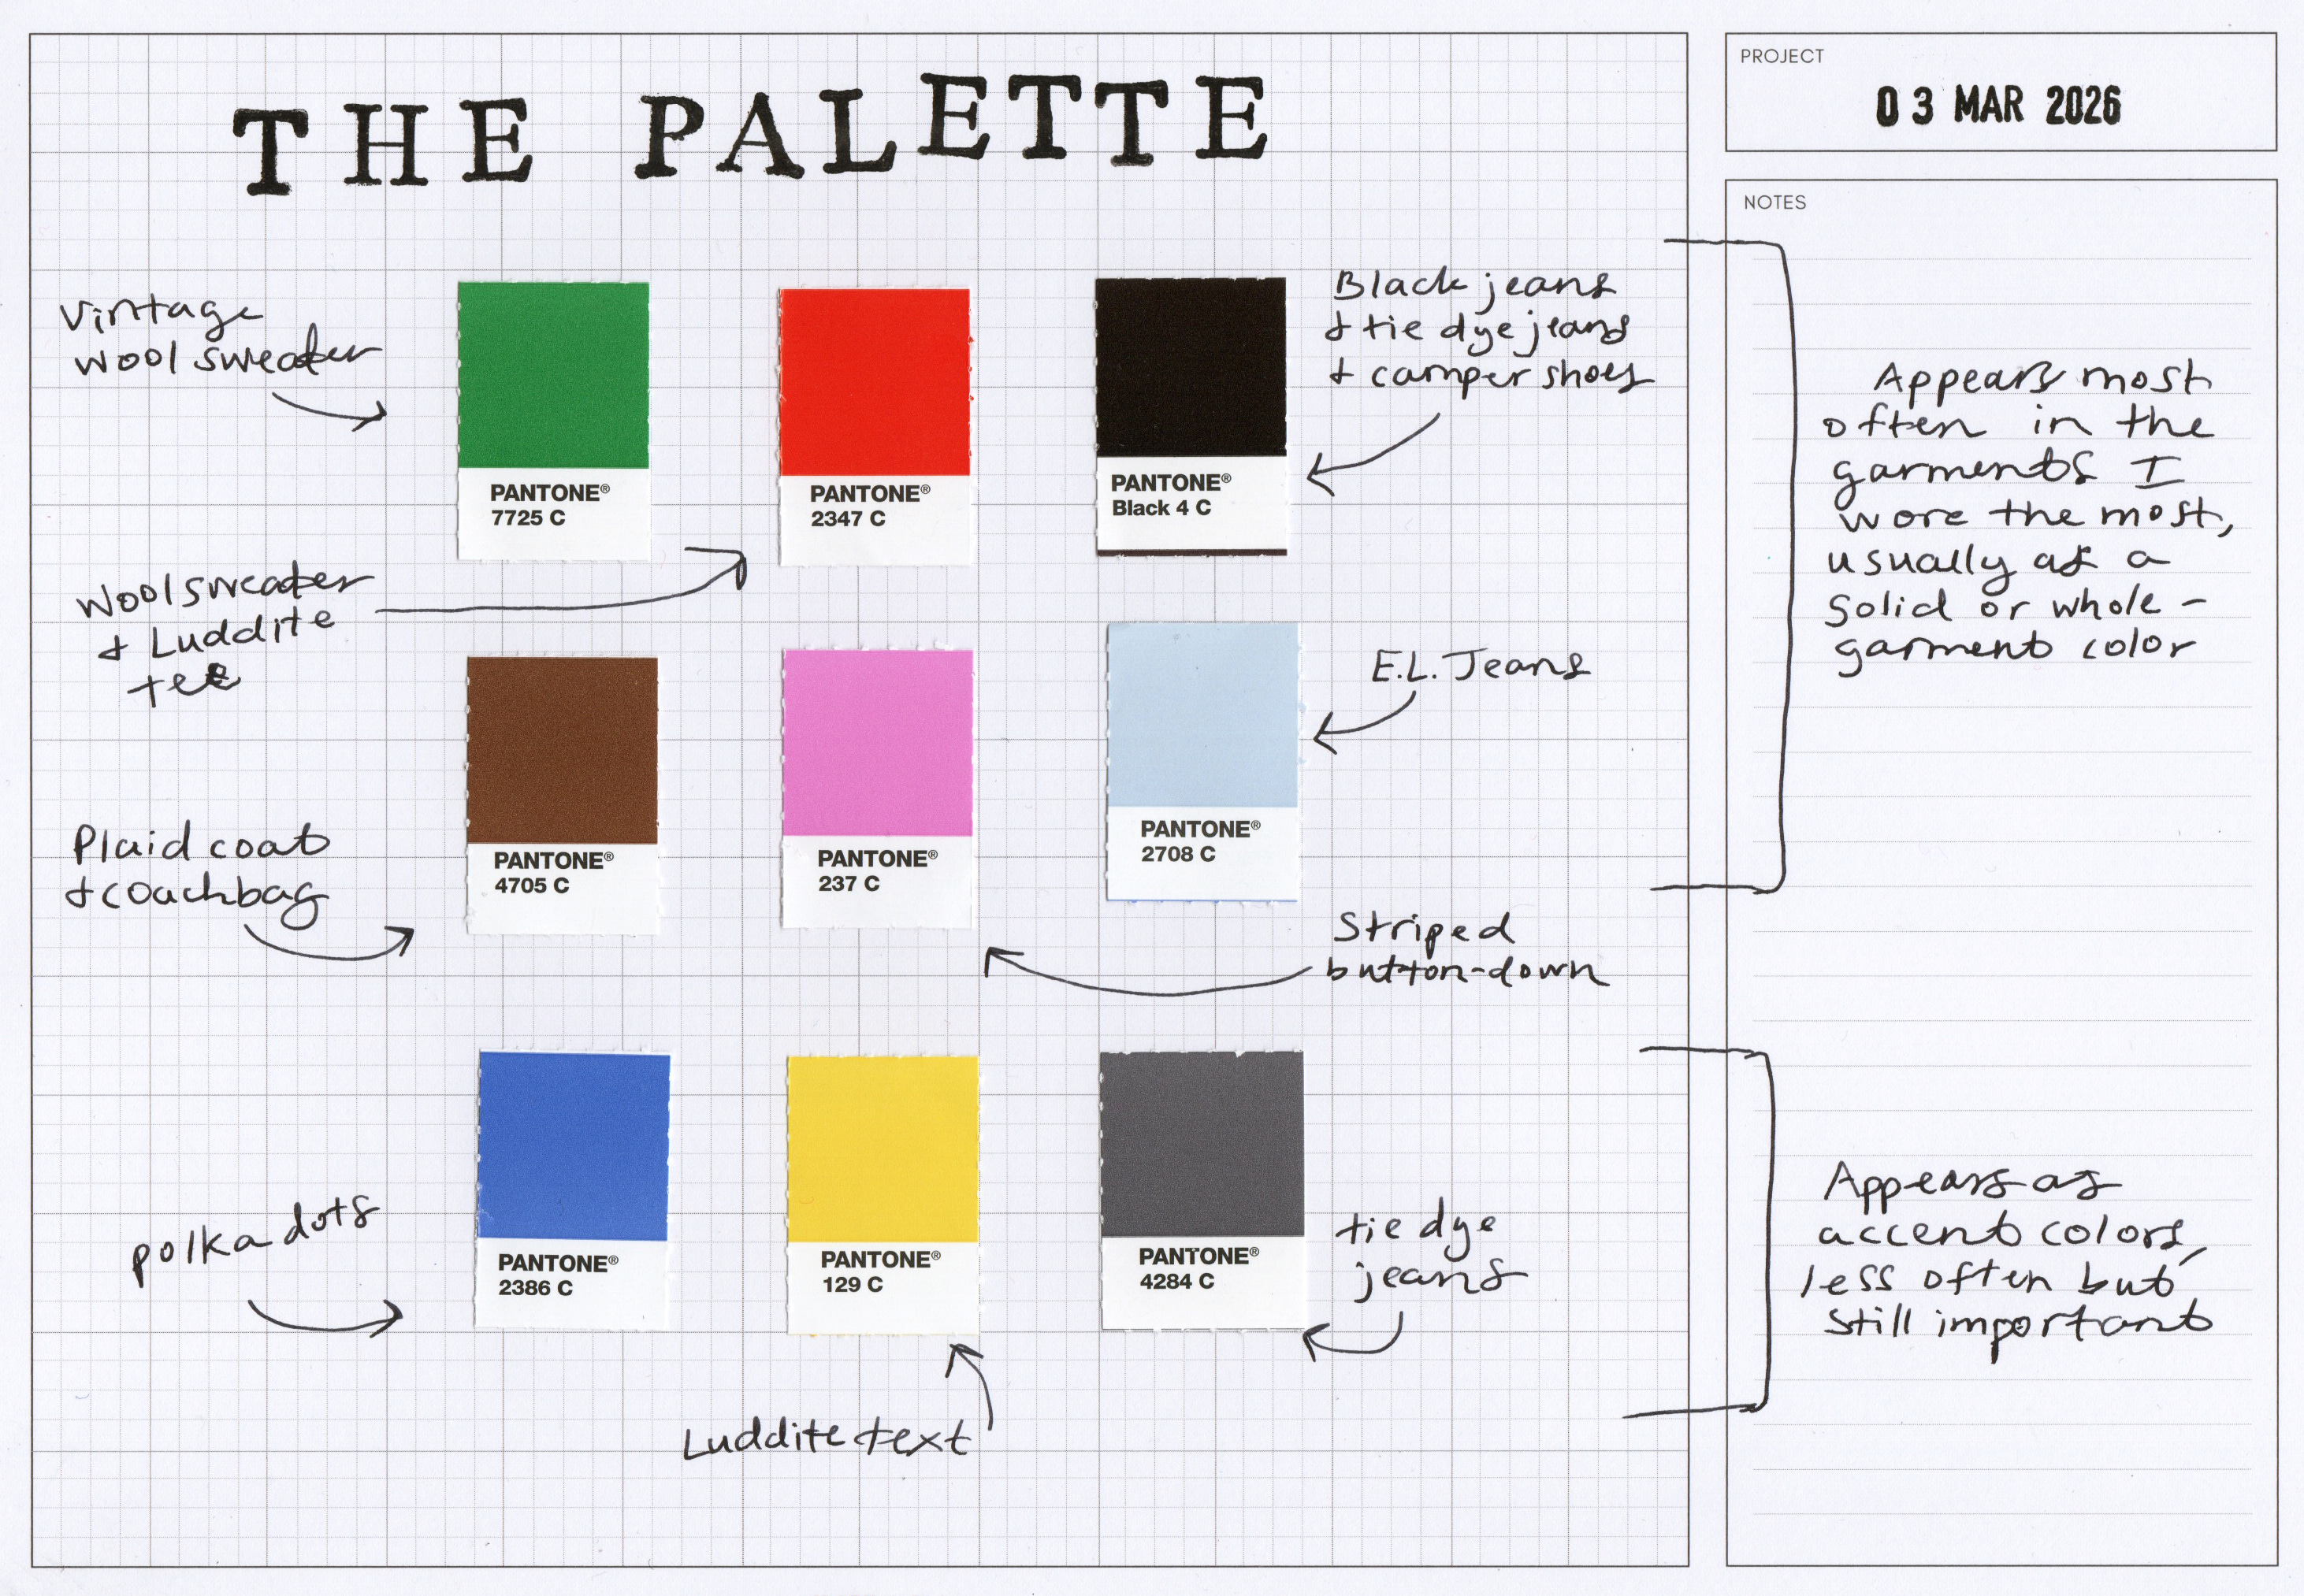 THE PALETTE
PROJECT
03 MAR 2026
NOTES
Vintage
wool sweater
PANTONE®
7725 C
PANTONE®
2347 C
PANTONE®
Black 4 C
Black jeans
& tie dye jeans
& camper shoes
Wool sweater
& Luddite
tee
PANTONE®
4705 C
PANTONE®
237 C
PANTONE®
2708 C
E.L. Jeans
Plaid coat
& coach bag
Striped
button-down
Appears most
often in the
garments I
wore the most,
usually as a
solid or whole-
garment color
polka dots
PANTONE®
2386 C
PANTONE®
129 C
PANTONE®
4284 C
tie dye
jeans
Luddite text
Appears as
accent colors,
less often but
still important